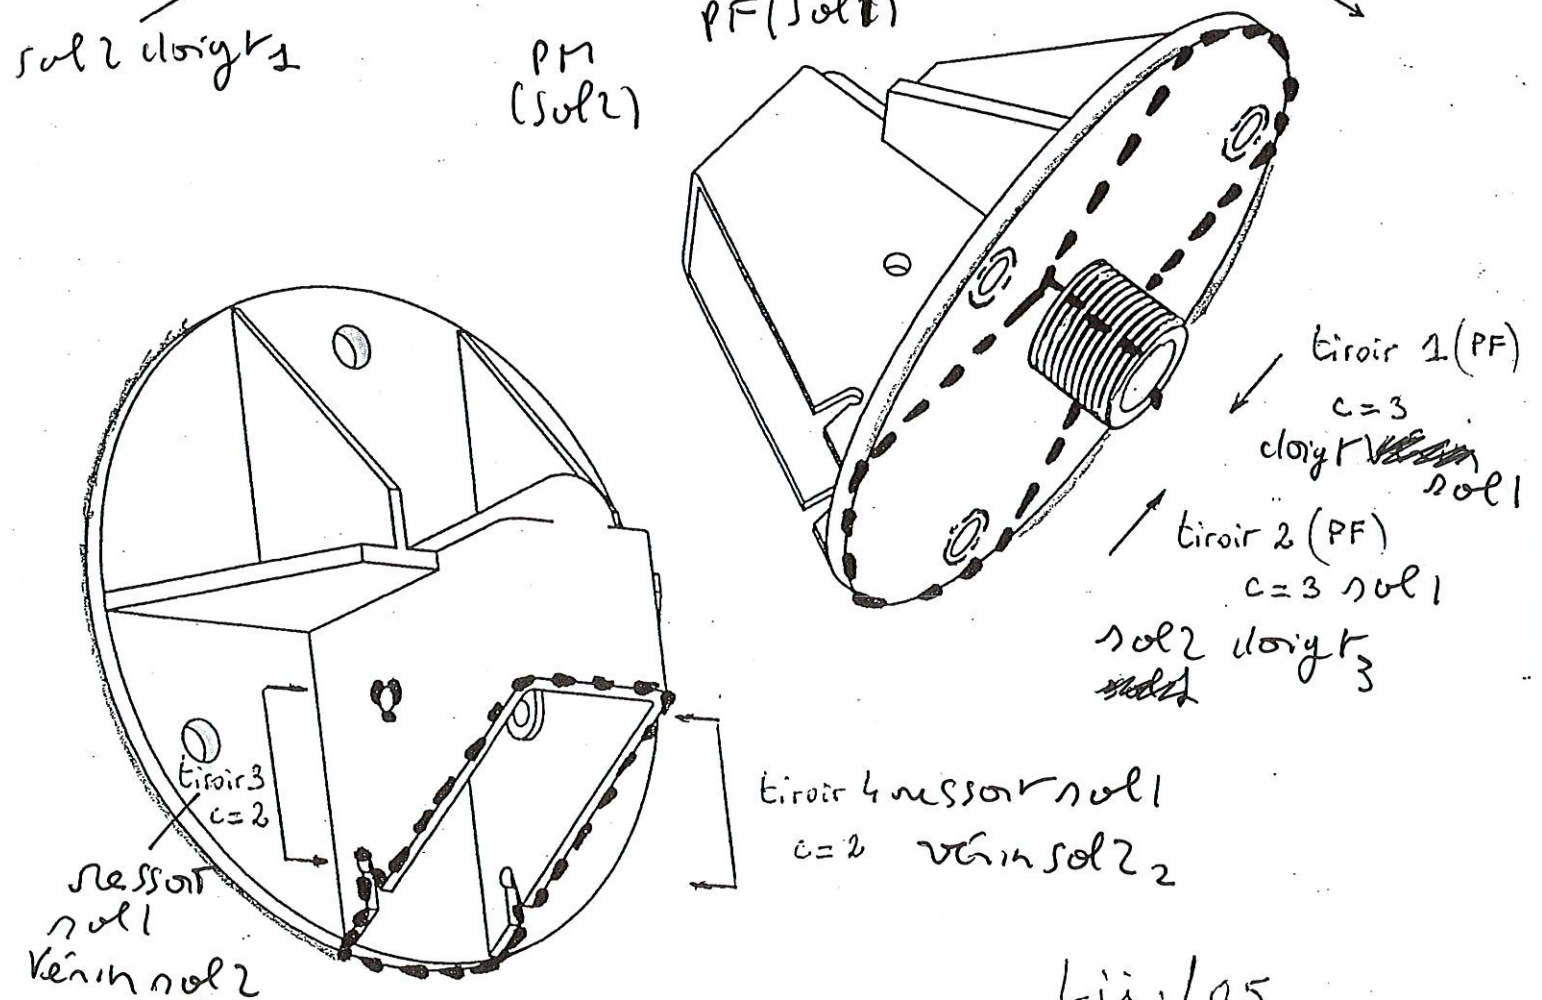 sol2 doigt 1
PM
(Sol2)
PF (Sol1)
tiroir 1 (PF)
c=3
doigt
sol1
tiroir 2 (PF)
c=3 sol1
sol2 doigt 3
tiroir 3
c=2
ressort
sol1
Vérin sol2
tiroir 4 ressort sol1
c=2 vérin sol2 2